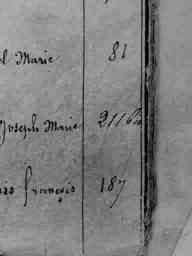 l Marie 81
Joseph Marie 211 bis
ois françois 187